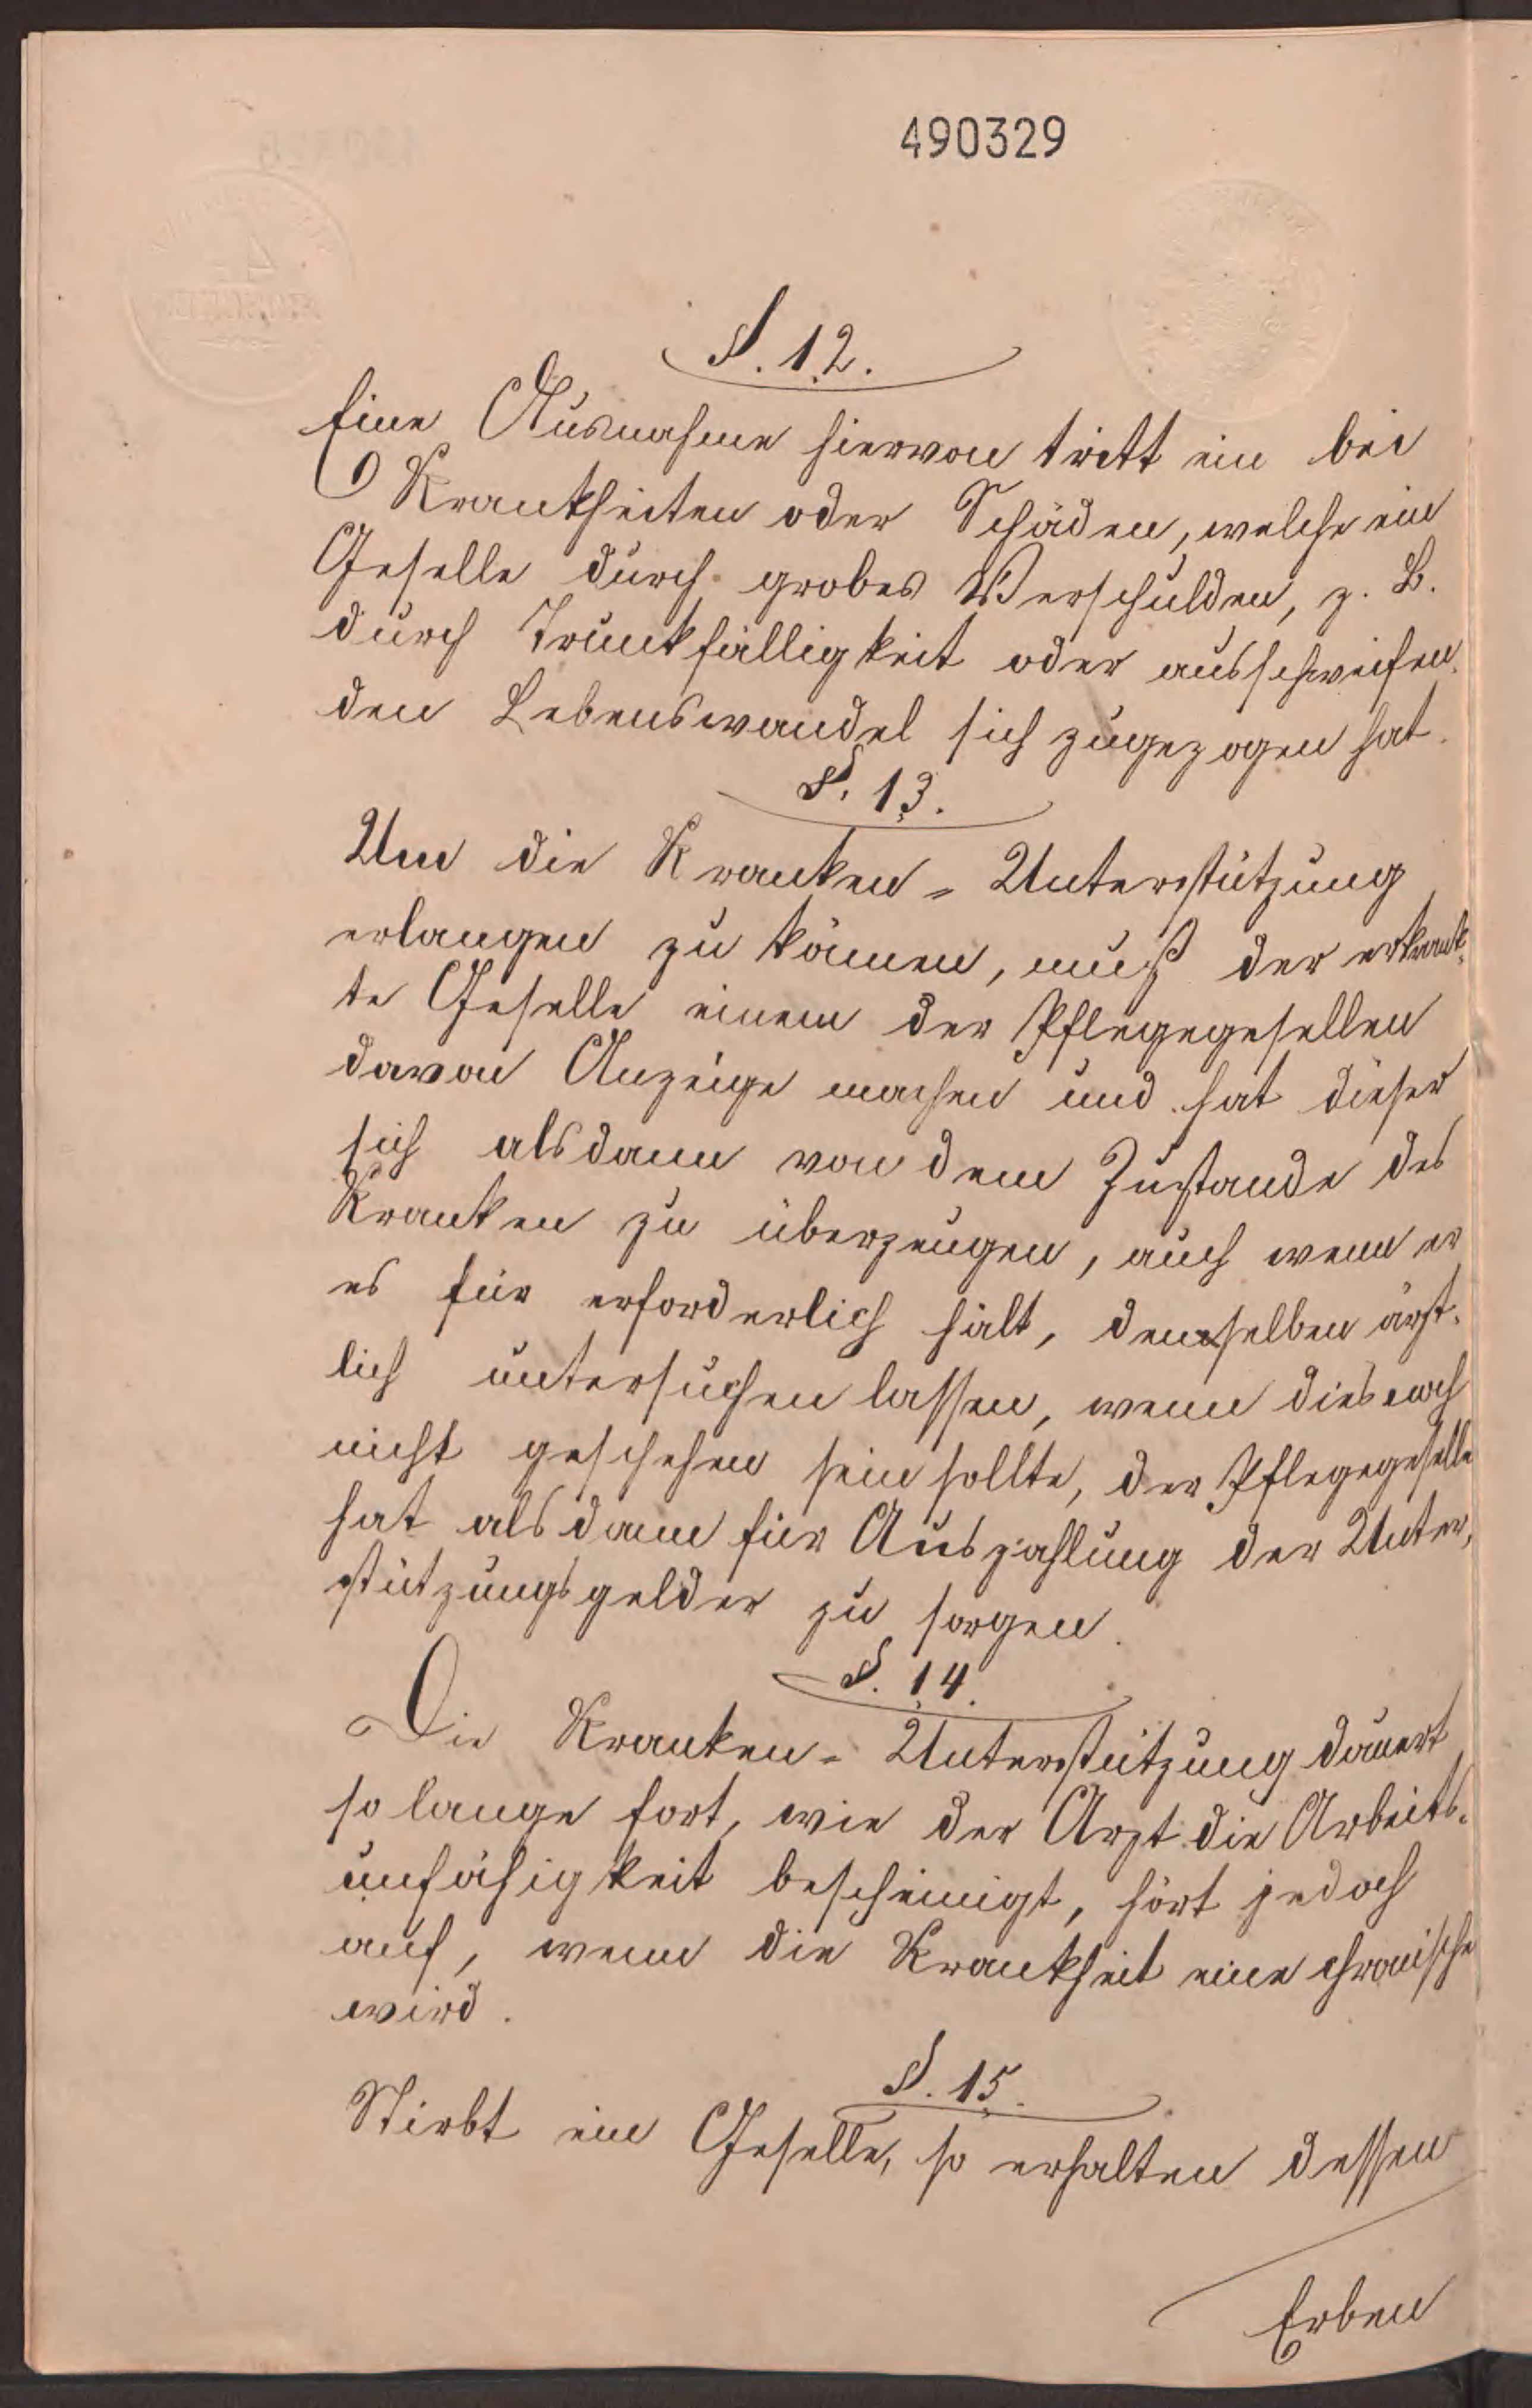 490329
§. 12.
Eine Ausnahme hiervon tritt ein bei
Krankheiten oder Schäden, welche ein
Geselle durch grobes Verschulden, z. B.
durch Trunkfälligkeit oder ausschweifen-
den Lebenswandel sich zugezogen hat.
§. 13.
Um die Kranken-Unterstützung
erlangen zu können, muß der erkrank-
te Geselle einem der Pflegegesellen
davon Anzeige machen und hat dieser
sich alsdann von dem Zustande des
Kranken zu überzeugen, auch wenn er
es für erforderlich hält, denselben ärzt-
lich untersuchen lassen, wenn dies noch
nicht geschehen sein sollte, der Pflegegeselle
hat alsdann für Auszahlung der Unter-
stützungsgelder zu sorgen.
§. 14.
Die Kranken-Unterstützung dauert
so lange fort, wie der Arzt die Arbeits-
unfähigkeit bescheinigt, hört jedoch
auf, wenn die Krankheit eine chronische
wird.
§. 15.
Stirbt ein Geselle, so erhalten dessen
Erben